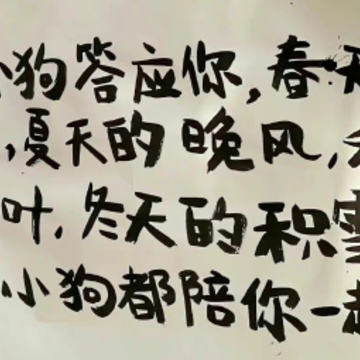 小狗答应你,春天
,夏天的晚风,
叶,冬天的积雪
小狗都陪你一起